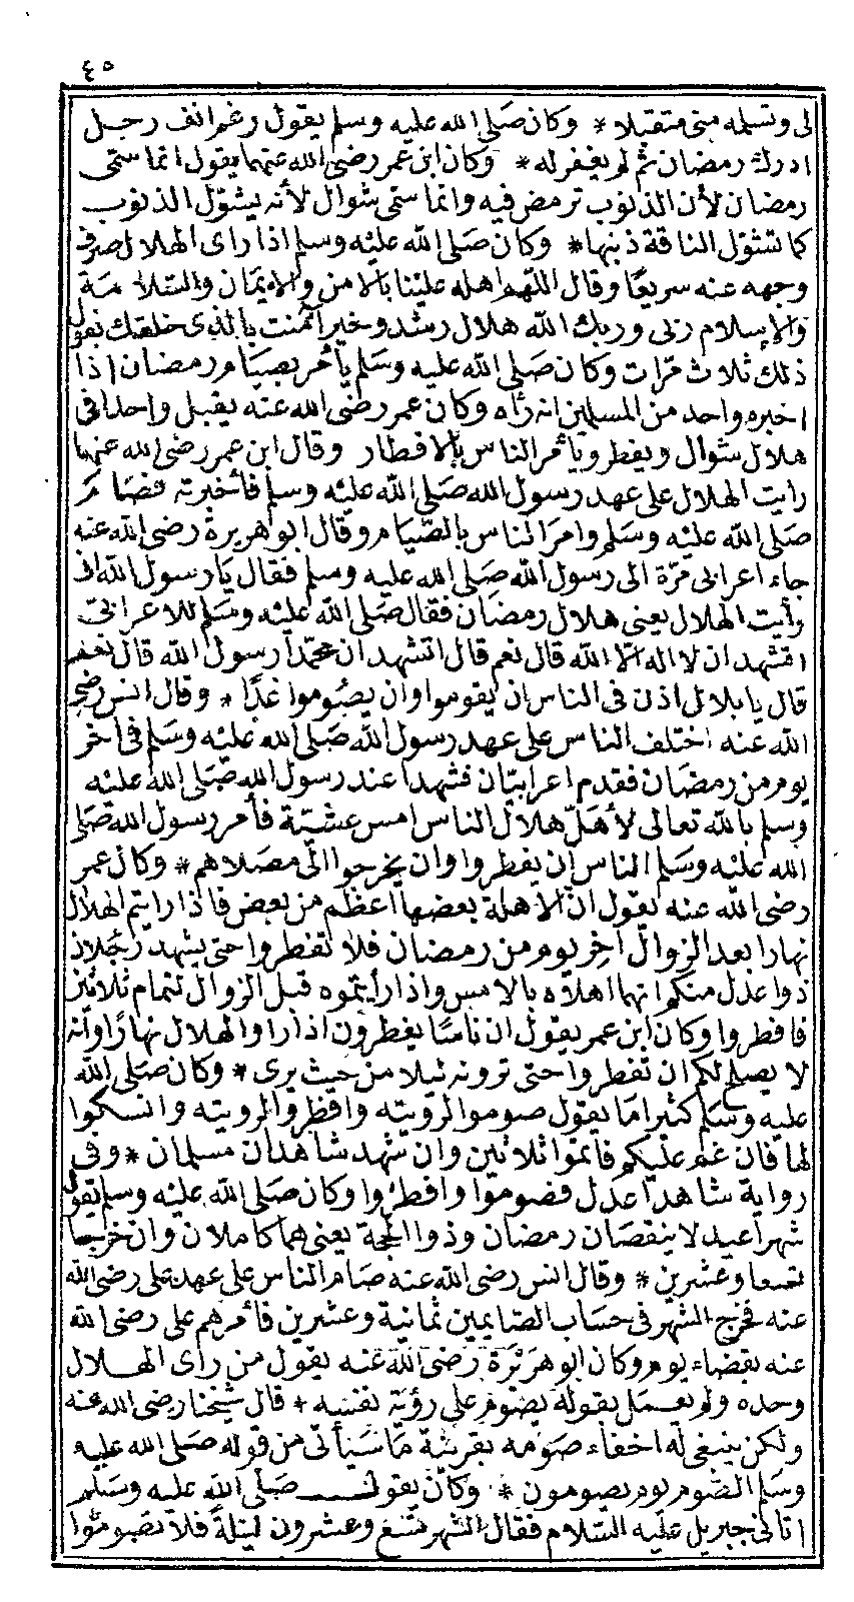 ٤٥
لى وتسلمه منى متقبلا * وكان صلى الله عليه وسلم يقول رغم انف رجل
ادرك رمضان ثم لم يغفر له * وكان ابن عمر رضى الله عنهما يقول انما سمى
رمضان لأن الذنوب ترمض فيه وانما سمى شوال لأنه يشول الذنوب
كما تشول الناقة ذنبها * وكان صلى الله عليه وسلم اذا راى الهلال صرف
وجهه عنه سريعا وقال اللهم اهله علينا بالامن والايمان والسلامة
والاسلام ربى وربك الله هلال رشد وخير آمنت بالذى خلقك يقول
ذلك ثلاث مرات وكان صلى الله عليه وسلم يأمر بصيام رمضان اذا
اخبره واحد من المسلمين انه رآه وكان عمر رضى الله عنه يقبل واحدا فى
هلال شوال ويفطر ويأمر الناس بالافطار وقال ابن عمر رضى الله عنهما
رايت الهلال على عهد رسول الله صلى الله عليه وسلم فأخبرته فصام
صلى الله عليه وسلم وامر الناس بالصيام وقال ابو هريرة رضى الله عنه
جاء اعرابى مرة الى رسول الله صلى الله عليه وسلم فقال يا رسول الله انى
رأيت الهلال يعنى هلال رمضان فقال صلى الله عليه وسلم للاعرابى
اتشهد ان لا اله الا الله قال نعم قال اتشهد ان محمدا رسول الله قال نعم
قال يا بلال اذن فى الناس ان يقوموا وان يصوموا غدا * وقال انس رضى
الله عنه اختلف الناس على عهد رسول الله صلى الله عليه وسلم فى آخر
يوم من رمضان فقدم اعرابيان فشهدا عند رسول الله صلى الله عليه
وسلم بالله تعالى لأهل هلال الناس امس عشية فأمر رسول الله صلى
الله عليه وسلم الناس ان يفطروا وان يخرجوا الى مصلاهم * وكان عمر
رضى الله عنه يقول ان الاهلة بعضها اعظم من بعض فاذا رايتم الهلال
نهارا بعد الزوال آخر يوم من رمضان فلا تفطروا حتى يشهد رجلان
ذوا عدل منكم انهما اهلاه بالامس واذا رأيتموه قبل الزوال لتمام ثلاثين
فافطروا وكان ابن عمر يقول ان ناسا يفطرون اذا راوا الهلال نهارا وانه
لا يصلح لكم ان تفطروا حتى ترونه ليلا من حيث يرى * وكان صلى الله
عليه وسلم كثيرا ما يقول صوموا لرويته وافطروا لرويته وانسكوا
لها فان غم عليكم فاتموا ثلاثين وان شهد شاهدان مسلمان * وفى
رواية شاهدا عدل فصوموا وافطروا وكان صلى الله عليه وسلم يقول
شهرا عيد لا ينقصان رمضان وذو الحجة يعنى هما كاملان وان خرجا
تسعا وعشرين * وقال انس رضى الله عنه صام الناس على عهد على رضى الله
عنه فخرج الشهر فى حساب الصايمين ثمانية وعشرين فأمرهم على رضى الله
عنه بقضاء يوم وكان ابو هريرة رضى الله عنه يقول من راى الهلال
وحده ولم يعمل بقوله يصوم على رؤية نفسه * قال شيخنا رضى الله عنه
ولكن ينبغى له اخفاء صومه بقرينة ما سيأتى من قوله صلى الله عليه
وسلم الصوم يوم يصومون * وكان يقول صلى الله عليه وسلم
اتانى جبريل عليه السلام فقال الشهر تسع وعشرون ليلة فلا تصوموا